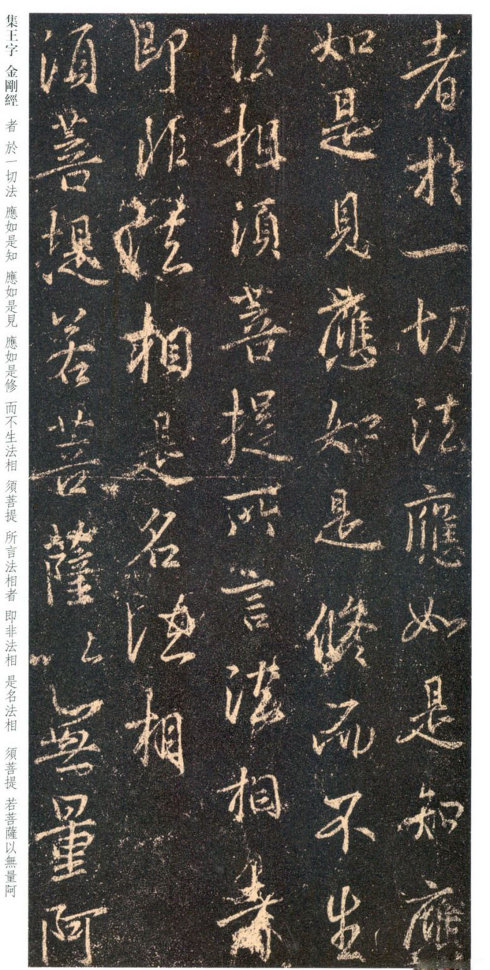 者於一切法應如是知應
如是見應如是修而不生
法相須菩提所言法相者
即非法相是名法相
須菩提若菩薩以無量阿
集王字 金剛經 者 於一切法 應如是知 應如是見 應如是修 而不生法相 須菩提 所言法相者 即非法相 是名法相 須菩提 若菩薩以無量阿